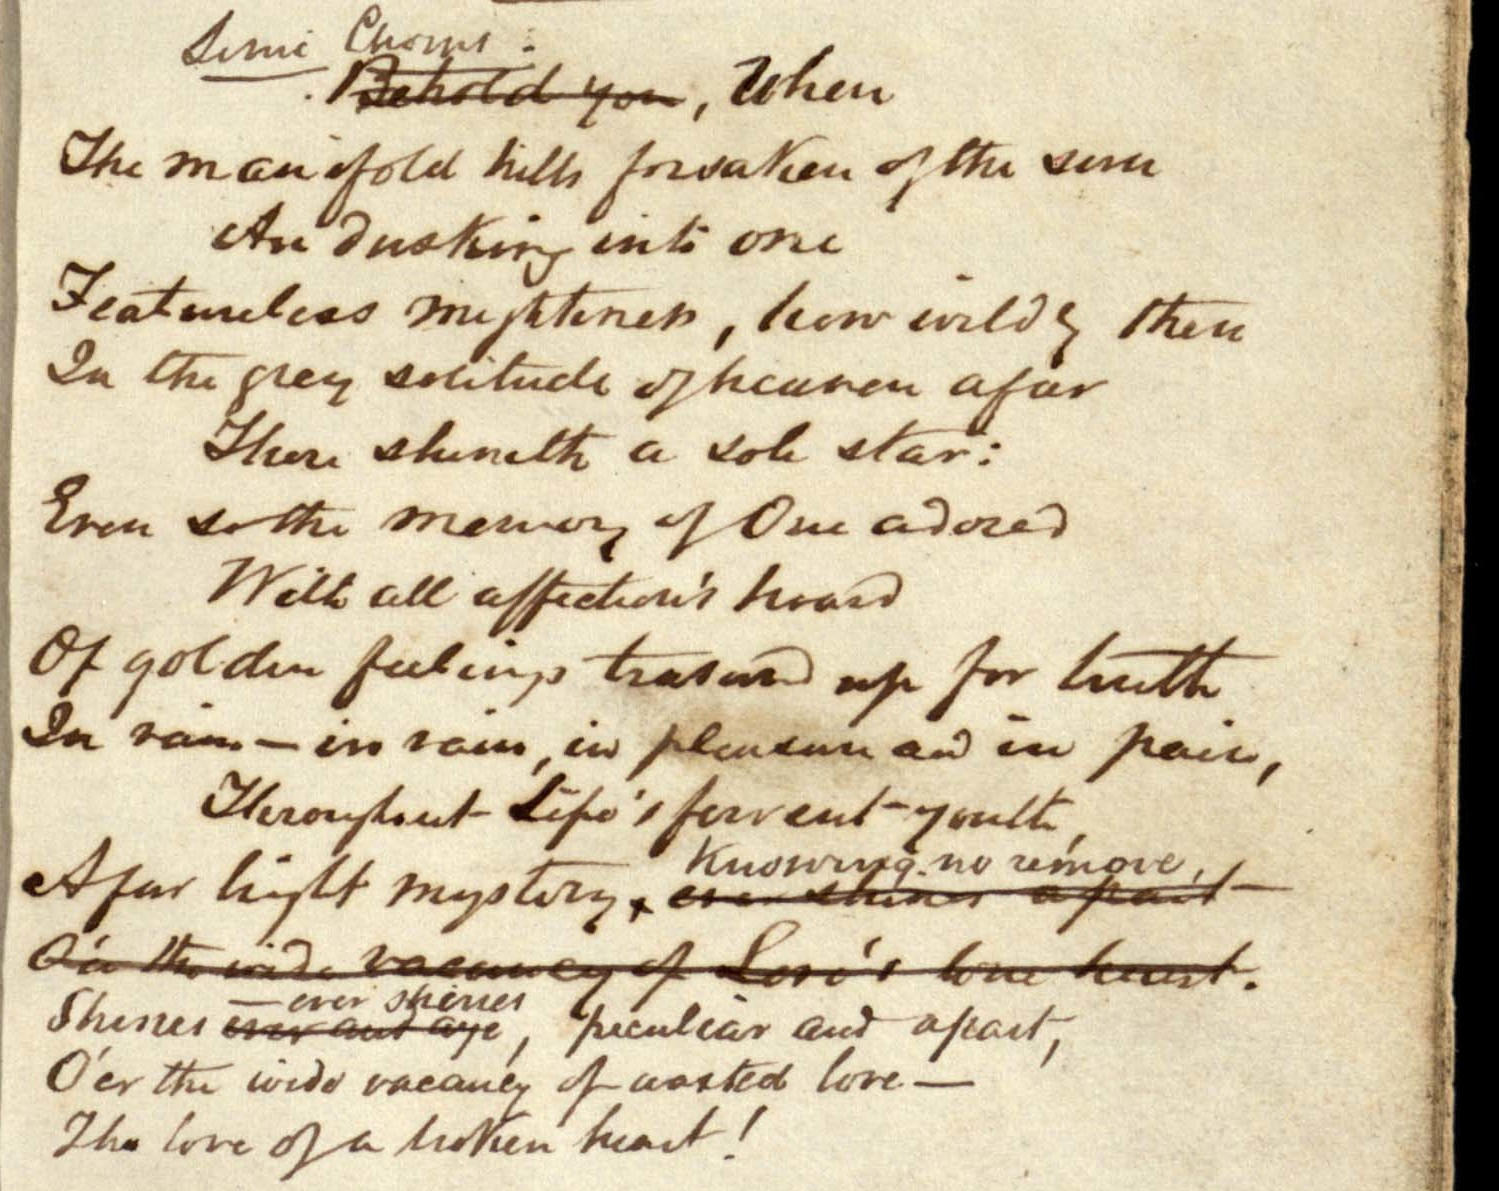 Semi Chorus.
Behold you, When
The manifold hills forsaken of the sun
Are dusking into one
Featureless mightiness, how wildly then
In the grey solitude of heaven afar
There shineth a sole star:
Even so the memory of One adored
With all affection's hoard
Of golden feelings treasured up for truth
In vain—in vain, in pleasure and in pain,
Throughout Life's fervent youth,
Knowing no remove,
A far light mystery, ever shines apart—
O'er the wide vacancy of Love's lone heart.
—ever shines
Shines ever and aye, peculiar and apart,
O'er the wide vacancy of wasted love—
The love of a broken heart!